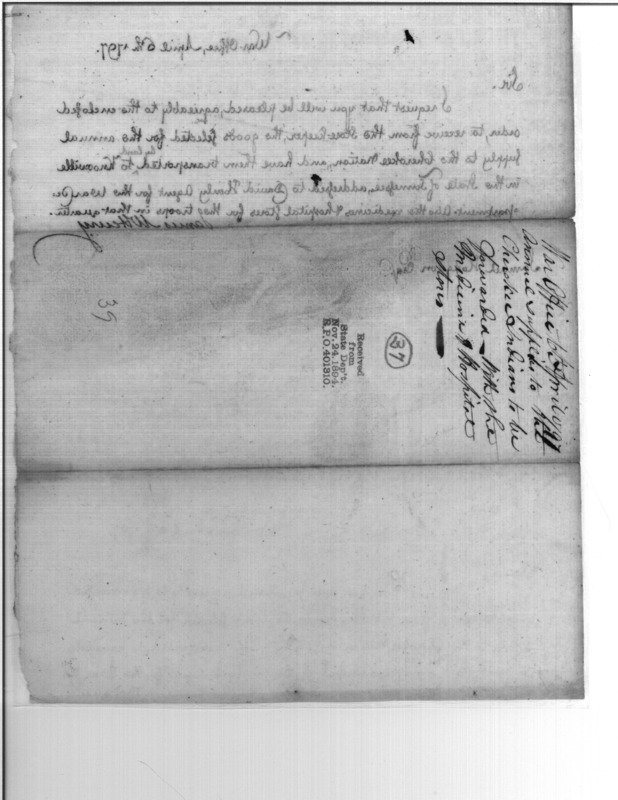 War Office, April 6th 1797.
Sir.
I request that you will be pleased, agreeably to the enclosed
order, to receive from the Store keeper, the goods selected for the annual
supply to the Cherokee Nation, and have them transported by land to Knoxville
in the State of Tennessee, addressed to David Henley Agent for the War De-
partment. Also the medicine & hospital stores for the troops in that quarter.
James McHenry
Esqr
War Office 6 April 1797
Annual supplies to the
Cherokee Indians to be
forwarded — with the
Medicine & Hospital
Stores —
37
Received
from
State Dep't.
Nov. 24, 1894.
R.P.O. 401310.
39